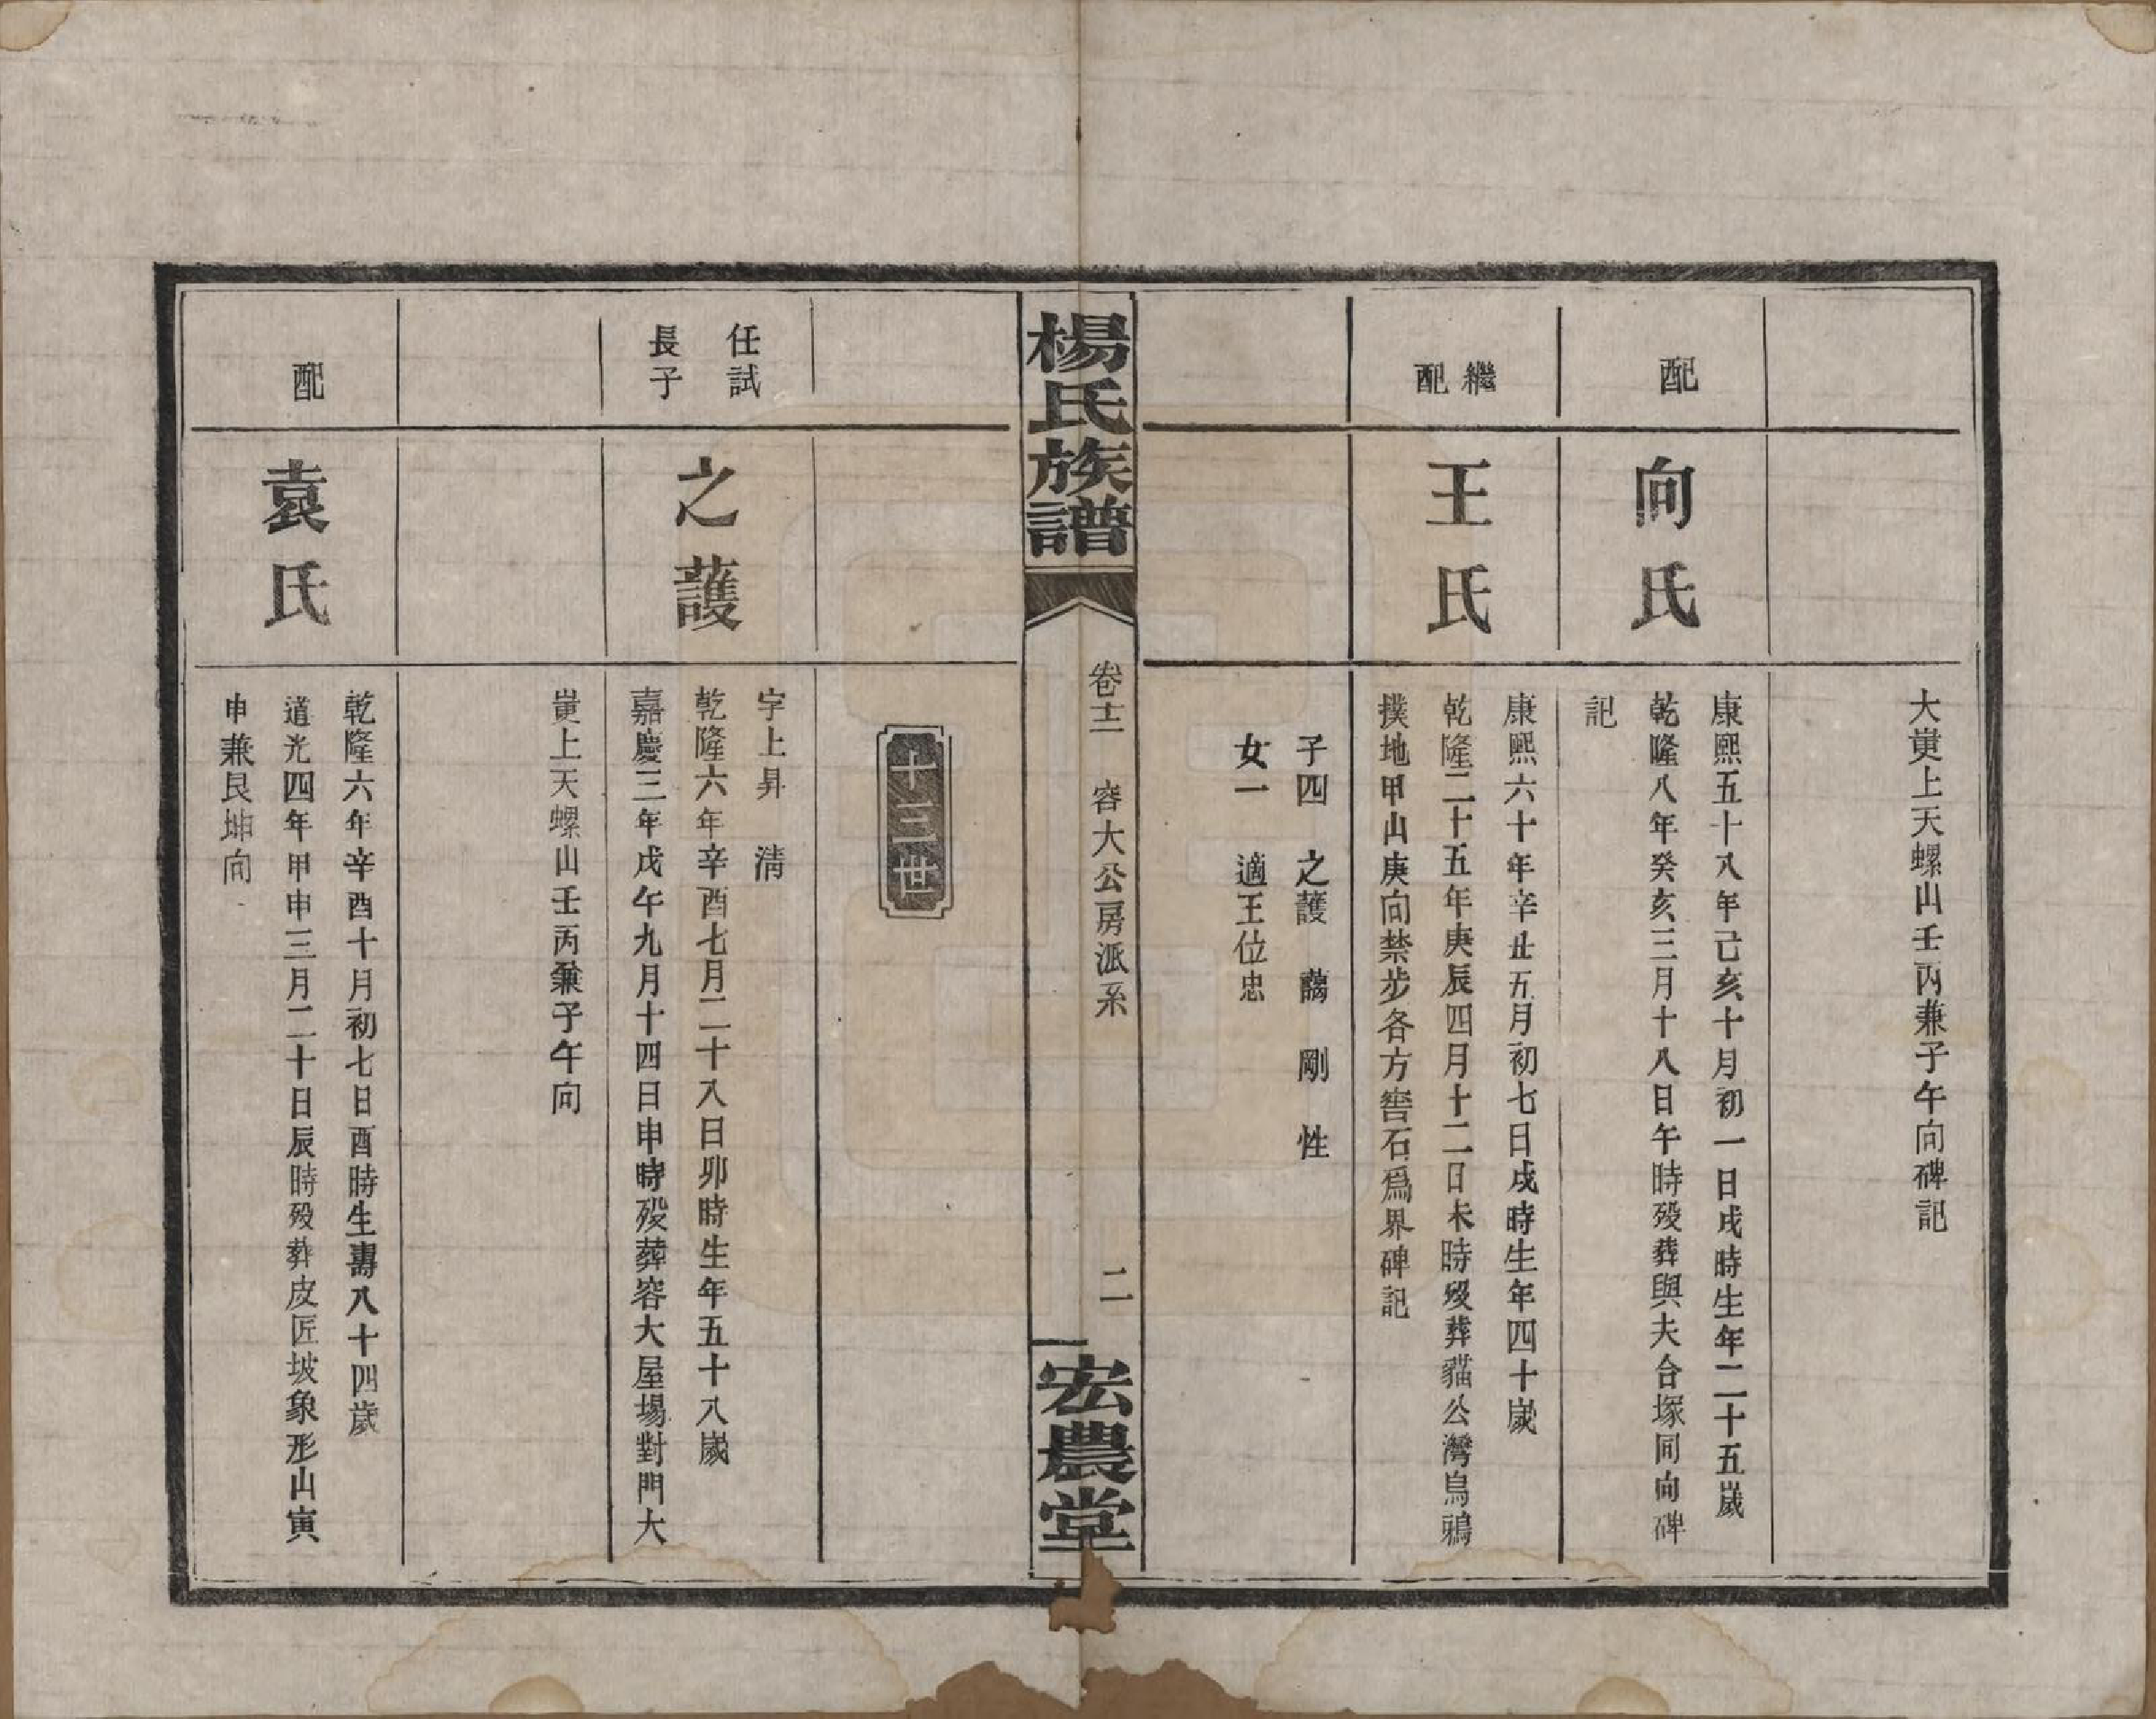 大嵔上天螺山壬丙兼子午向碑記
配
向氏
康熙五十八年己亥十月初一日戌時生年二十五歲
乾隆八年癸亥三月十八日午時殁葬與夫合塚同向碑
記
繼配
王氏
康熙六十年辛丑五月初七日戌時生年四十歲
乾隆二十五年庚辰四月十二日未時殁葬貓公灣烏鴉
撲地甲山庚向禁步各方窖石爲界碑記
子四 之頀 藹 剛 性
女一 適王位忠
楊氏族譜
卷十二 容大公房派系
二
宏農堂
十三世
任試
長子
之頀
字上昇 清
乾隆六年辛酉七月二十八日卯時生年五十八歲
嘉慶三年戊午九月十四日申時殁葬容大屋場對門大
嵔上天螺山壬丙兼子午向
配
袁氏
乾隆六年辛酉十月初七日酉時生壽八十四歲
道光四年甲申三月二十日辰時殁葬皮匠坡象形山寅
申兼艮坤向